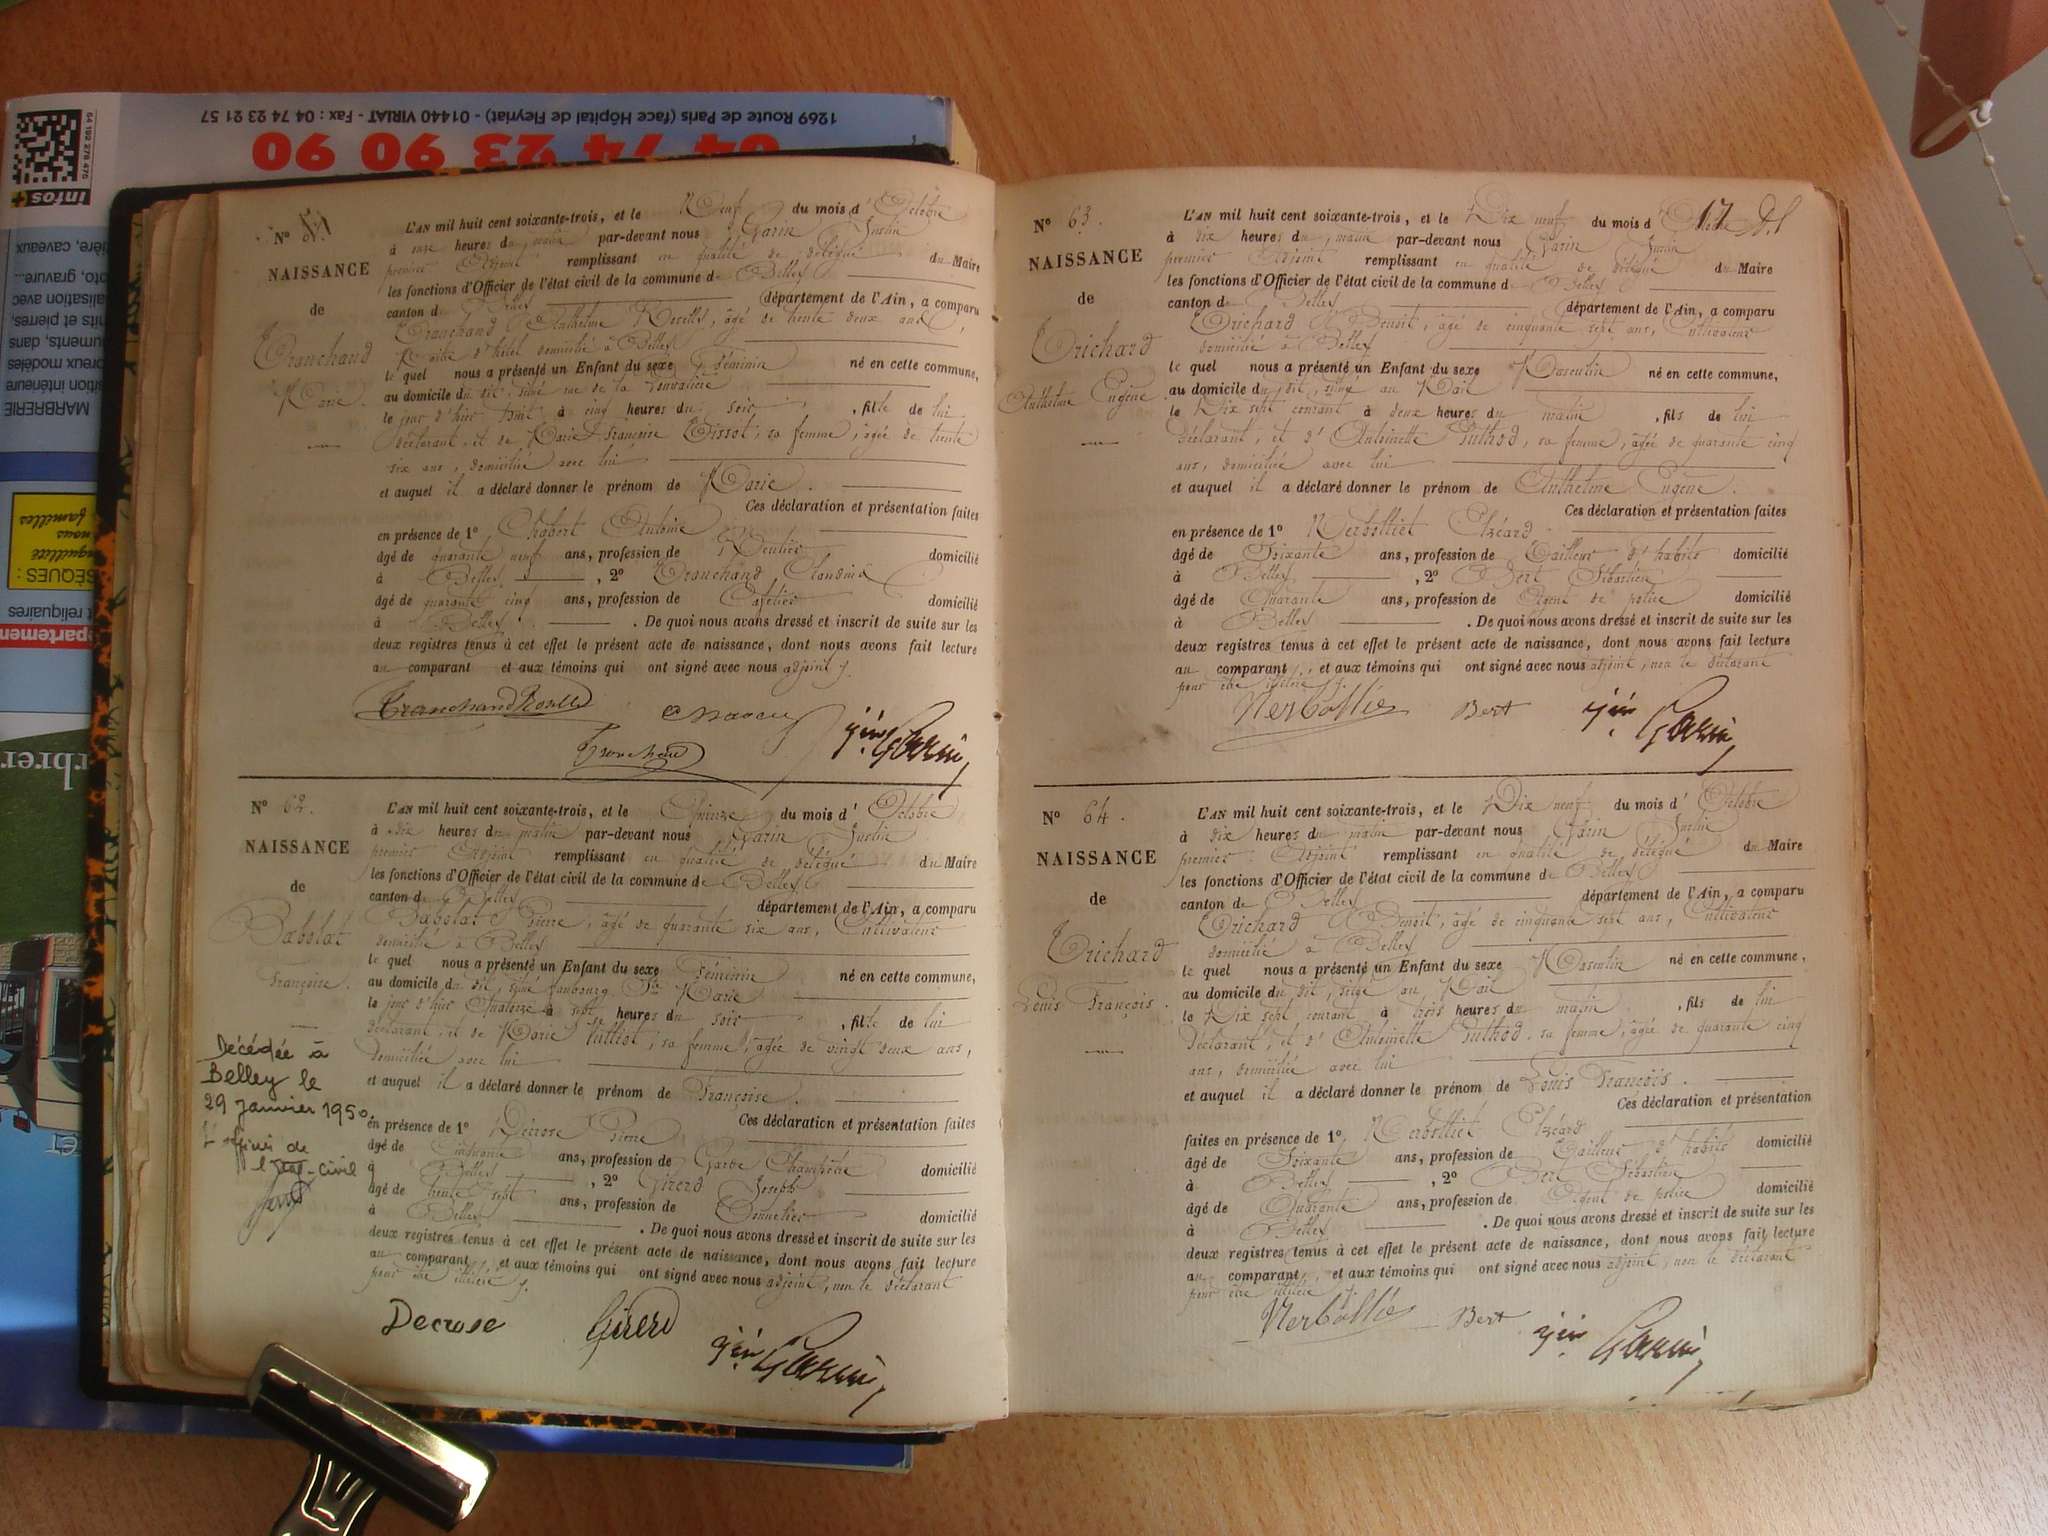 1269 Route de Paris (face Hôpital de Fleyriat) - 01440 VIRIAT - Fax : 04 74 23 21 57
04 74 23 90 90
infos+
MARBRERIE
N°
NAISSANCE
de
Tranchand
Marie.
L'AN mil huit cent soixante-trois, et le Neuf du mois d'Octobre
à onze heures du matin par-devant nous Garin Justin
premier Adjoint remplissant en qualité de délégué du Maire
les fonctions d'Officier de l'état civil de la commune de Belley
canton de Belley département de l'Ain, a comparu
Tranchand Anthelme Roselly, âgé de trente deux ans,
Maître d'hôtel domicilié à Belley
le quel nous a présenté un Enfant du sexe Féminin né en cette commune,
au domicile du dit, situé rue de la
le jour d'hier huit à cinq heures du soir, fille de lui
déclarant, et de Marie Françoise Tissot, sa femme, âgée de trente
six ans, domiciliée avec lui
et auquel il a déclaré donner le prénom de Marie.
Ces déclaration et présentation faites
en présence de 1° Chabert Antoine
âgé de quarante neuf ans, profession de Rentier domicilié
à Belley, 2° Tranchand Claudius
âgé de quarante cinq ans, profession de Cafetier domicilié
à Belley. De quoi nous avons dressé et inscrit de suite sur les
deux registres tenus à cet effet le présent acte de naissance, dont nous avons fait lecture
au comparant et aux témoins qui ont signé avec nous adjoint.
Tranchand
Tranchand
Jin Garin
N° 62.
NAISSANCE
de
Babolat
Françoise.
Décédée à
Belley le
29 janvier 1950.
L'officier de
l'état-civil
L'AN mil huit cent soixante-trois, et le Quinze du mois d'Octobre
à dix heures du matin par-devant nous Garin Justin
premier Adjoint remplissant en qualité de délégué du Maire
les fonctions d'Officier de l'état civil de la commune de Belley
canton de Belley département de l'Ain, a comparu
Babolat Pierre, âgé de quarante six ans, Cultivateur
domicilié à Belley
le quel nous a présenté un Enfant du sexe Féminin né en cette commune,
au domicile du dit, situé faubourg Ste Marie
le jour d'hier Quatorze à sept heures du soir, fille de lui
déclarant, et de Marie Pulliat, sa femme, âgée de vingt deux ans,
domiciliée avec lui
et auquel il a déclaré donner le prénom de Françoise.
Ces déclaration et présentation faites
en présence de 1° Décrose Pierre
âgé de Cinquante ans, profession de Garde Champêtre domicilié
à Belley, 2° Girerd Joseph
âgé de trente sept ans, profession de Tonnelier domicilié
à Belley. De quoi nous avons dressé et inscrit de suite sur les
deux registres tenus à cet effet le présent acte de naissance, dont nous avons fait lecture
au comparant, et aux témoins qui ont signé avec nous adjoint, non le déclarant
pour être illitéré.
Decrose Girerd Jin Garin
17
N° 63.
NAISSANCE
de
Trichard
Anthelme Eugène.
L'AN mil huit cent soixante-trois, et le Dix neuf du mois d'
à dix heures du matin par-devant nous Garin Justin
premier Adjoint remplissant en qualité de délégué du Maire
les fonctions d'Officier de l'état civil de la commune de Belley
canton de Belley département de l'Ain, a comparu
Trichard Benoit, âgé de cinquante sept ans, Cultivateur
domicilié à Belley
le quel nous a présenté un Enfant du sexe Masculin né en cette commune,
au domicile du dit, situé au Mail
le Dix sept courant à deux heures du matin, fils de lui
déclarant, et d'Antoinette Puthod, sa femme, âgée de quarante cinq
ans, domiciliée avec lui
et auquel il a déclaré donner le prénom de Anthelme Eugène.
Ces déclaration et présentation faites
en présence de 1° Nerbolliet Elzéard
âgé de Soixante ans, profession de Tailleur d'habits domicilié
à Belley, 2° Bert Sébastien
âgé de Quarante ans, profession de Agent de police domicilié
à Belley. De quoi nous avons dressé et inscrit de suite sur les
deux registres tenus à cet effet le présent acte de naissance, dont nous avons fait lecture
au comparant, et aux témoins qui ont signé avec nous adjoint, non le déclarant
pour être illitéré.
Bert Jin Garin
N° 64.
NAISSANCE
de
Trichard
Louis François.
L'AN mil huit cent soixante-trois, et le Dix neuf du mois d'Octobre
à dix heures du matin par-devant nous Garin Justin
premier Adjoint remplissant en qualité de délégué du Maire
les fonctions d'Officier de l'état civil de la commune de Belley
canton de Belley département de l'Ain, a comparu
Trichard Benoit, âgé de cinquante sept ans, Cultivateur
domicilié à Belley
le quel nous a présenté un Enfant du sexe Masculin né en cette commune,
au domicile du dit, situé au Mail
le Dix sept courant à trois heures du matin, fils de lui
déclarant, et d'Antoinette Puthod, sa femme, âgée de quarante cinq
ans, domiciliée avec lui
et auquel il a déclaré donner le prénom de Louis François.
Ces déclaration et présentation
faites en présence de 1° Nerbolliet Elzéard
âgé de Soixante ans, profession de Tailleur d'habits domicilié
à Belley, 2° Bert Sébastien
âgé de Quarante ans, profession de Agent de police domicilié
à Belley. De quoi nous avons dressé et inscrit de suite sur les
deux registres tenus à cet effet le présent acte de naissance, dont nous avons fait lecture
au comparant, et aux témoins qui ont signé avec nous adjoint, non le déclarant
pour être illitéré.
Bert Jin Garin